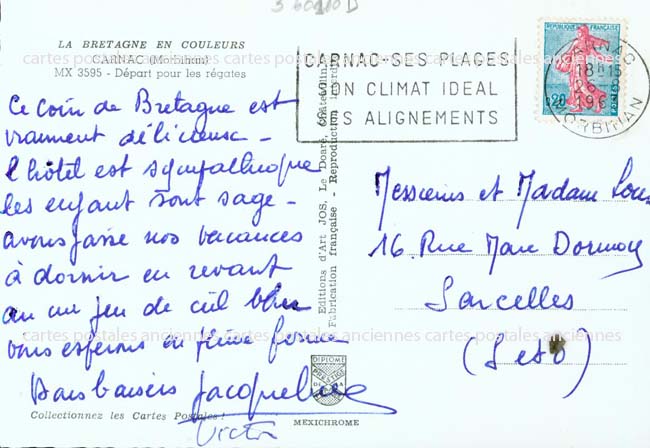 3 60110 D
LA BRETAGNE EN COULEURS
CARNAC (Morbihan)
MX 3595 - Départ pour les régates
Ce coin de Bretagne est
vraiment délicieuse -
l'hôtel est sympathique
les enfant sont sage -
avons passé nos vacances
à dormir en revant
un peu de ciel bleu
vous espérons en pleine forme
Bons baisers Jacqueline
Victor
Collectionnez les Cartes Postales !
Editions d'Art JOS, Le Doaré, Châteaulin
Fabrication française - Reproduction
DIPLOME
PRESTIGE
MEXICHROME
CARNAC-SES PLAGES
SON CLIMAT IDEAL
SES ALIGNEMENTS
REPUBLIQUE FRANÇAISE
0,20
CARNAC
18H15
196
MORBIHAN
Messieurs et Madam
16. Rue Marc Dormoy
Sarcelles
(S et O)
cartes postales anciennes cartes postales anciennes cartes postales anciennes
cartes postales anciennes cartes postales anciennes cartes postales anciennes